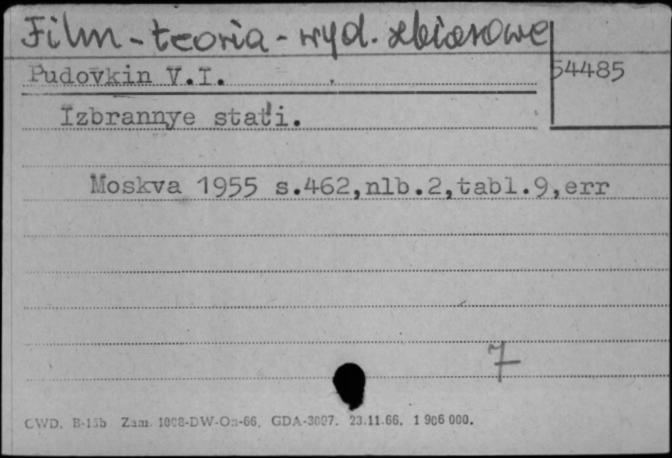 Film - teoria - wyd. zbiorowe
Pudovkin V.I.
54485
Izbrannye stat'i.
Moskva 1955 s.462,nlb.2,tabl.9,err
7
CWD. B-15b Zam. 1008-DW-On-66. GDA-3097. 23.11.66. 1 906 000.